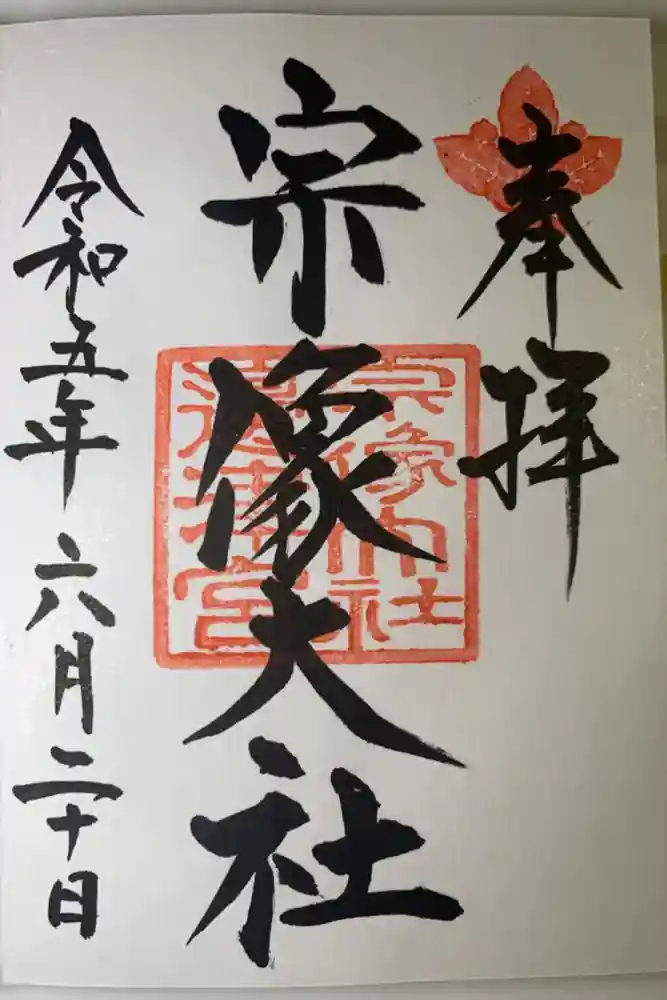 奉拝
宗像大社
宗像大社
邊津宮
令和五年六月二十日